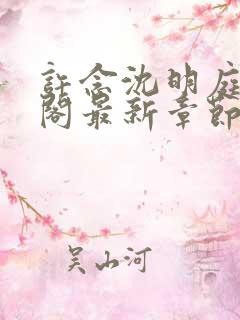 許念沈明庭
閣最新章節
吴山河